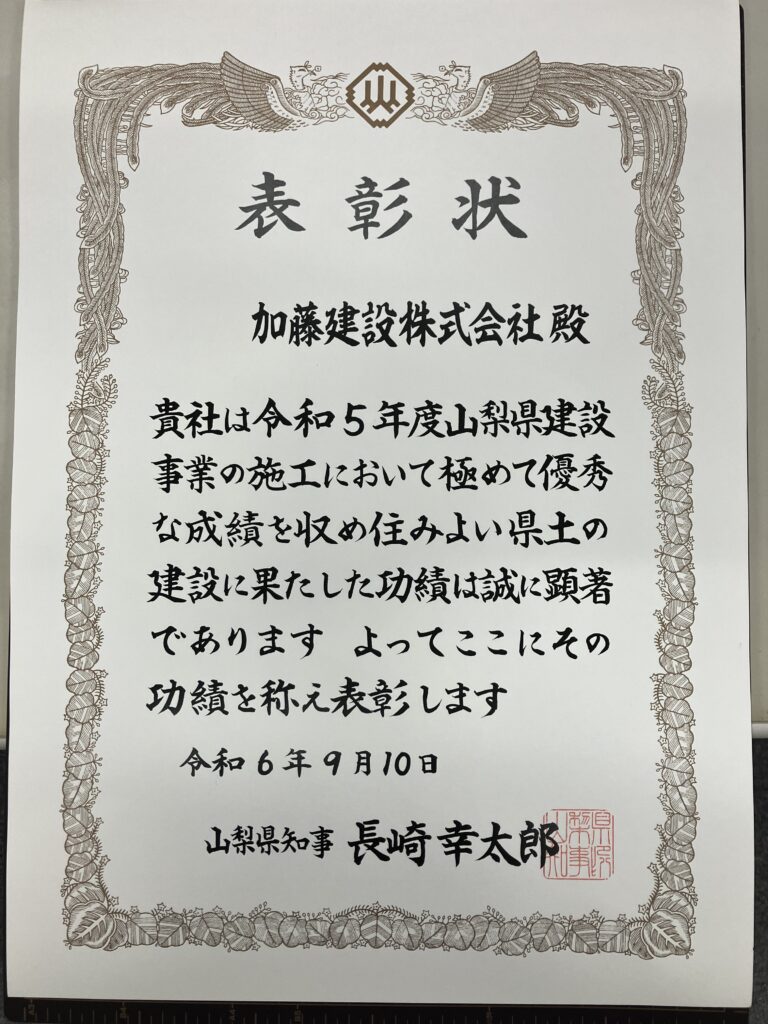 表彰状
加藤建設株式会社殿
貴社は令和5年度山梨県建設
事業の施工において極めて優秀
な成績を収め住みよい県土の
建設に果たした功績は誠に顕著
であります よってここにその
功績を称え表彰します
令和6年9月10日
山梨県知事 長崎幸太郎